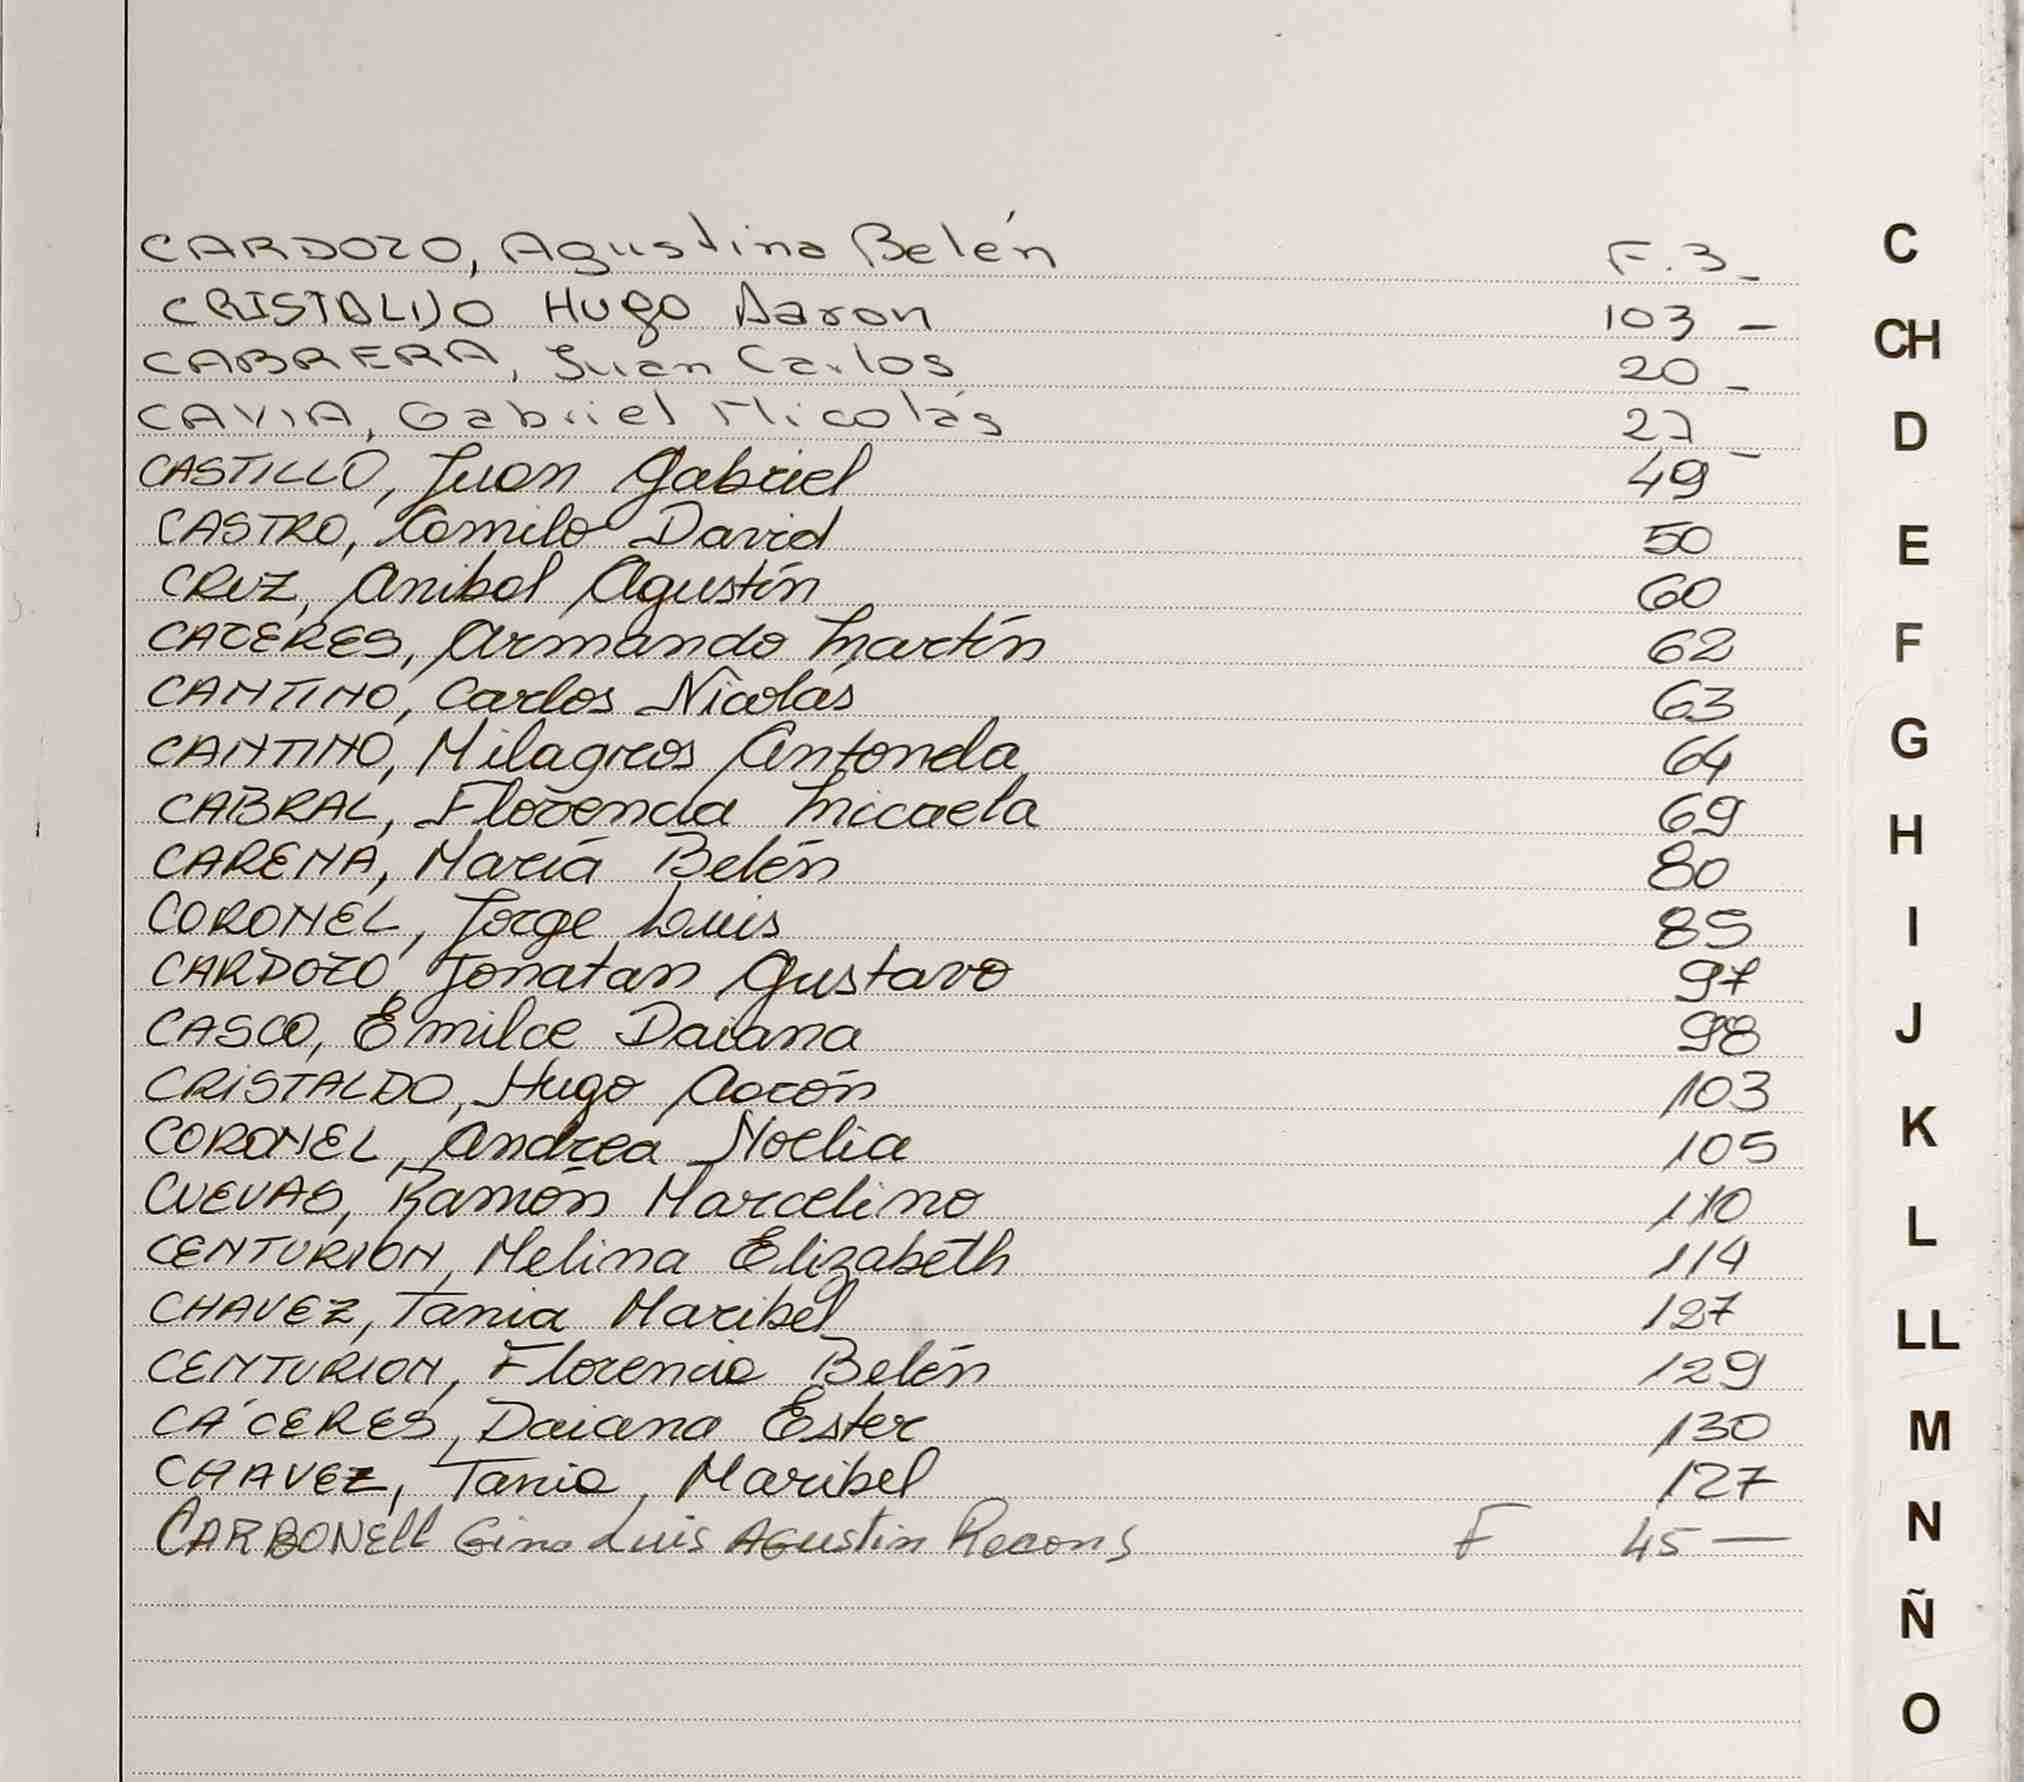 CARDOZO, Agustina Belén F. 3-
CRISTALDO Hugo Aaron 103 -
CABRERA, Juan Carlos 20 -
CAVIA, Gabriel Nicolás 27 -
CASTILLO, Juan Gabriel 49
CASTRO, Camilo David 50
CRUZ, Anibal Agustín 60
CACERES, Armando Martín 62
CANTINO, Carlos Nicolás 63
CANTINO, Milagros Antonela 64
CABRAL, Florencia Micaela 69
CARENA, María Belén 80
CORONEL, Jorge Luis 85
CARDOZO, Jonatan Gustavo 97
CASCO, Emilce Daiana 98
CRISTALDO, Hugo Aarón 103
CORONEL, Andrea Noelia 105
CUEVAS, Ramón Marcelino 110
CENTURION, Melina Elizabeth 114
CHAVEZ, Tania Maribel 127
CENTURION, Florencia Belén 129
CÁCERES, Daiana Ester 130
CHAVEZ, Tania, Maribel 127
CARBONELL Gino Luis AGustin F 45 —
C
CH
D
E
F
G
H
I
J
K
L
LL
M
N
Ñ
O